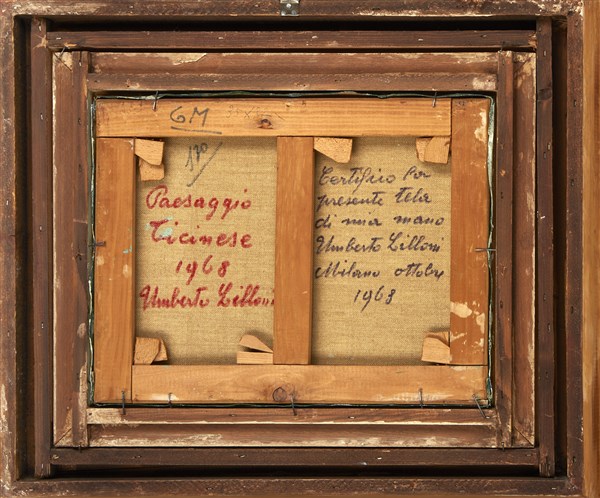 6M
170
Paesaggio
Ticinese
1968
Umberto Lilloni
Certifico la
presente tela
di mia mano
Umberto Lilloni
Milano ottobre
1968